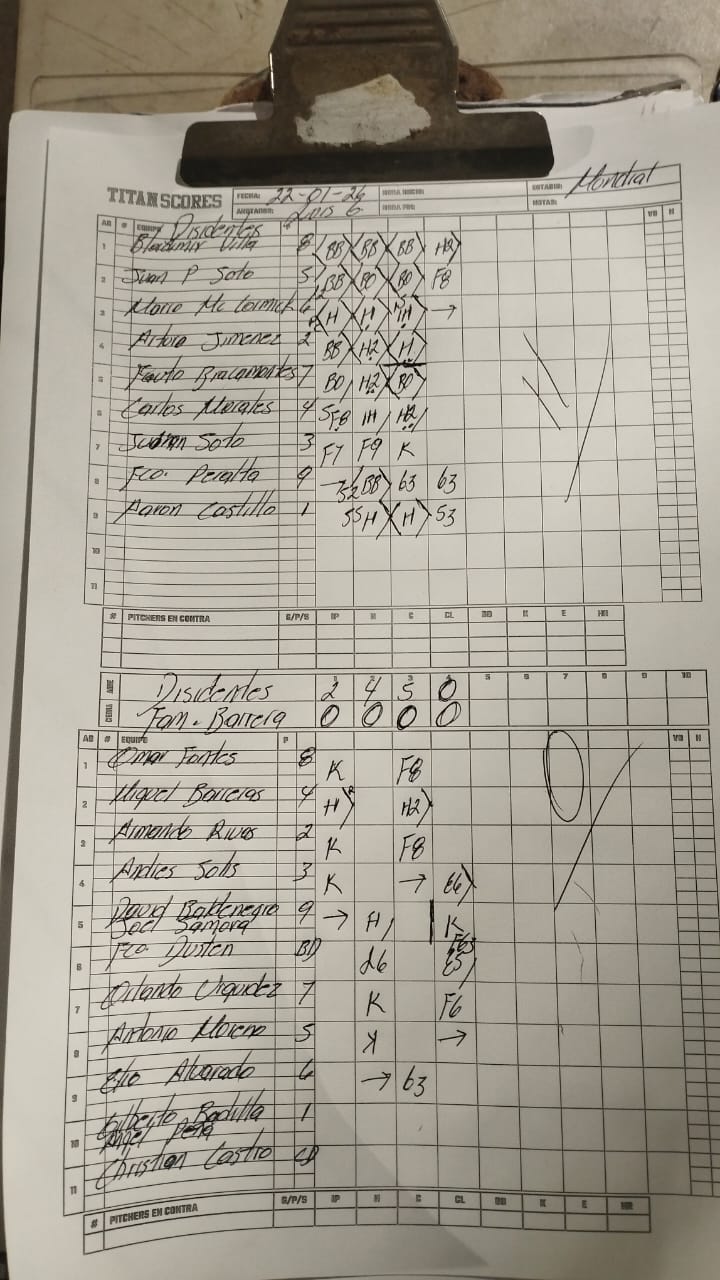 TITAN SCORES FECHA: 22-01-26 HORA INICIO: ESTADIO: Mondial
ANOTADOR: Luis G HORA FIN: NOTAS:
AB # EQUIPO Disidentes P VB H
1 Bladimir Villa 8 BB BB BB H2
2 Juan P Soto 5 BB BO BO F8
3 Mario Mc Cormick 6 H H H →
4 Arturo Jimenez 2 BB H2 H
5 Fauto Bracamontes 7 BO H2 BO
6 Carlos Morales 4 F8 H H2
7 Soto 3 F7 F9 K
8 Fco. Peralta 9 → BB 63 63
9 Aaron Castillo 1 H H 53
10
11
# PITCHERS EN CONTRA G/P/S IP H C CL BB K E HR
1 2 3 4 5 6 7 8 9 10
Disidentes 2 4 5 0
Fam. Barrera 0 0 0 0
AB # EQUIPO P VB H
1 Omar Fontes 8 K F8
2 Miguel Barreras 4 H H2
3 Armando Rivas 2 K F8
4 Andres Solis 3 K → E6
5 David Baldenegro 9 → H K
Joel Samora
6 Fco Dusten BD
7 Orlando Urquidez 7 K F6
8 Antonio Moreno 5 K →
9 Alvarado 6 → 63
10 Gilberto Badilla 1
Angel Peña
11 Christian Castro
# PITCHERS EN CONTRA G/P/S IP H C CL BB K E HR